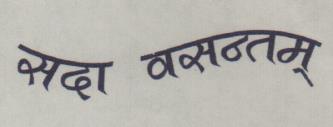 सदा वसन्तम्